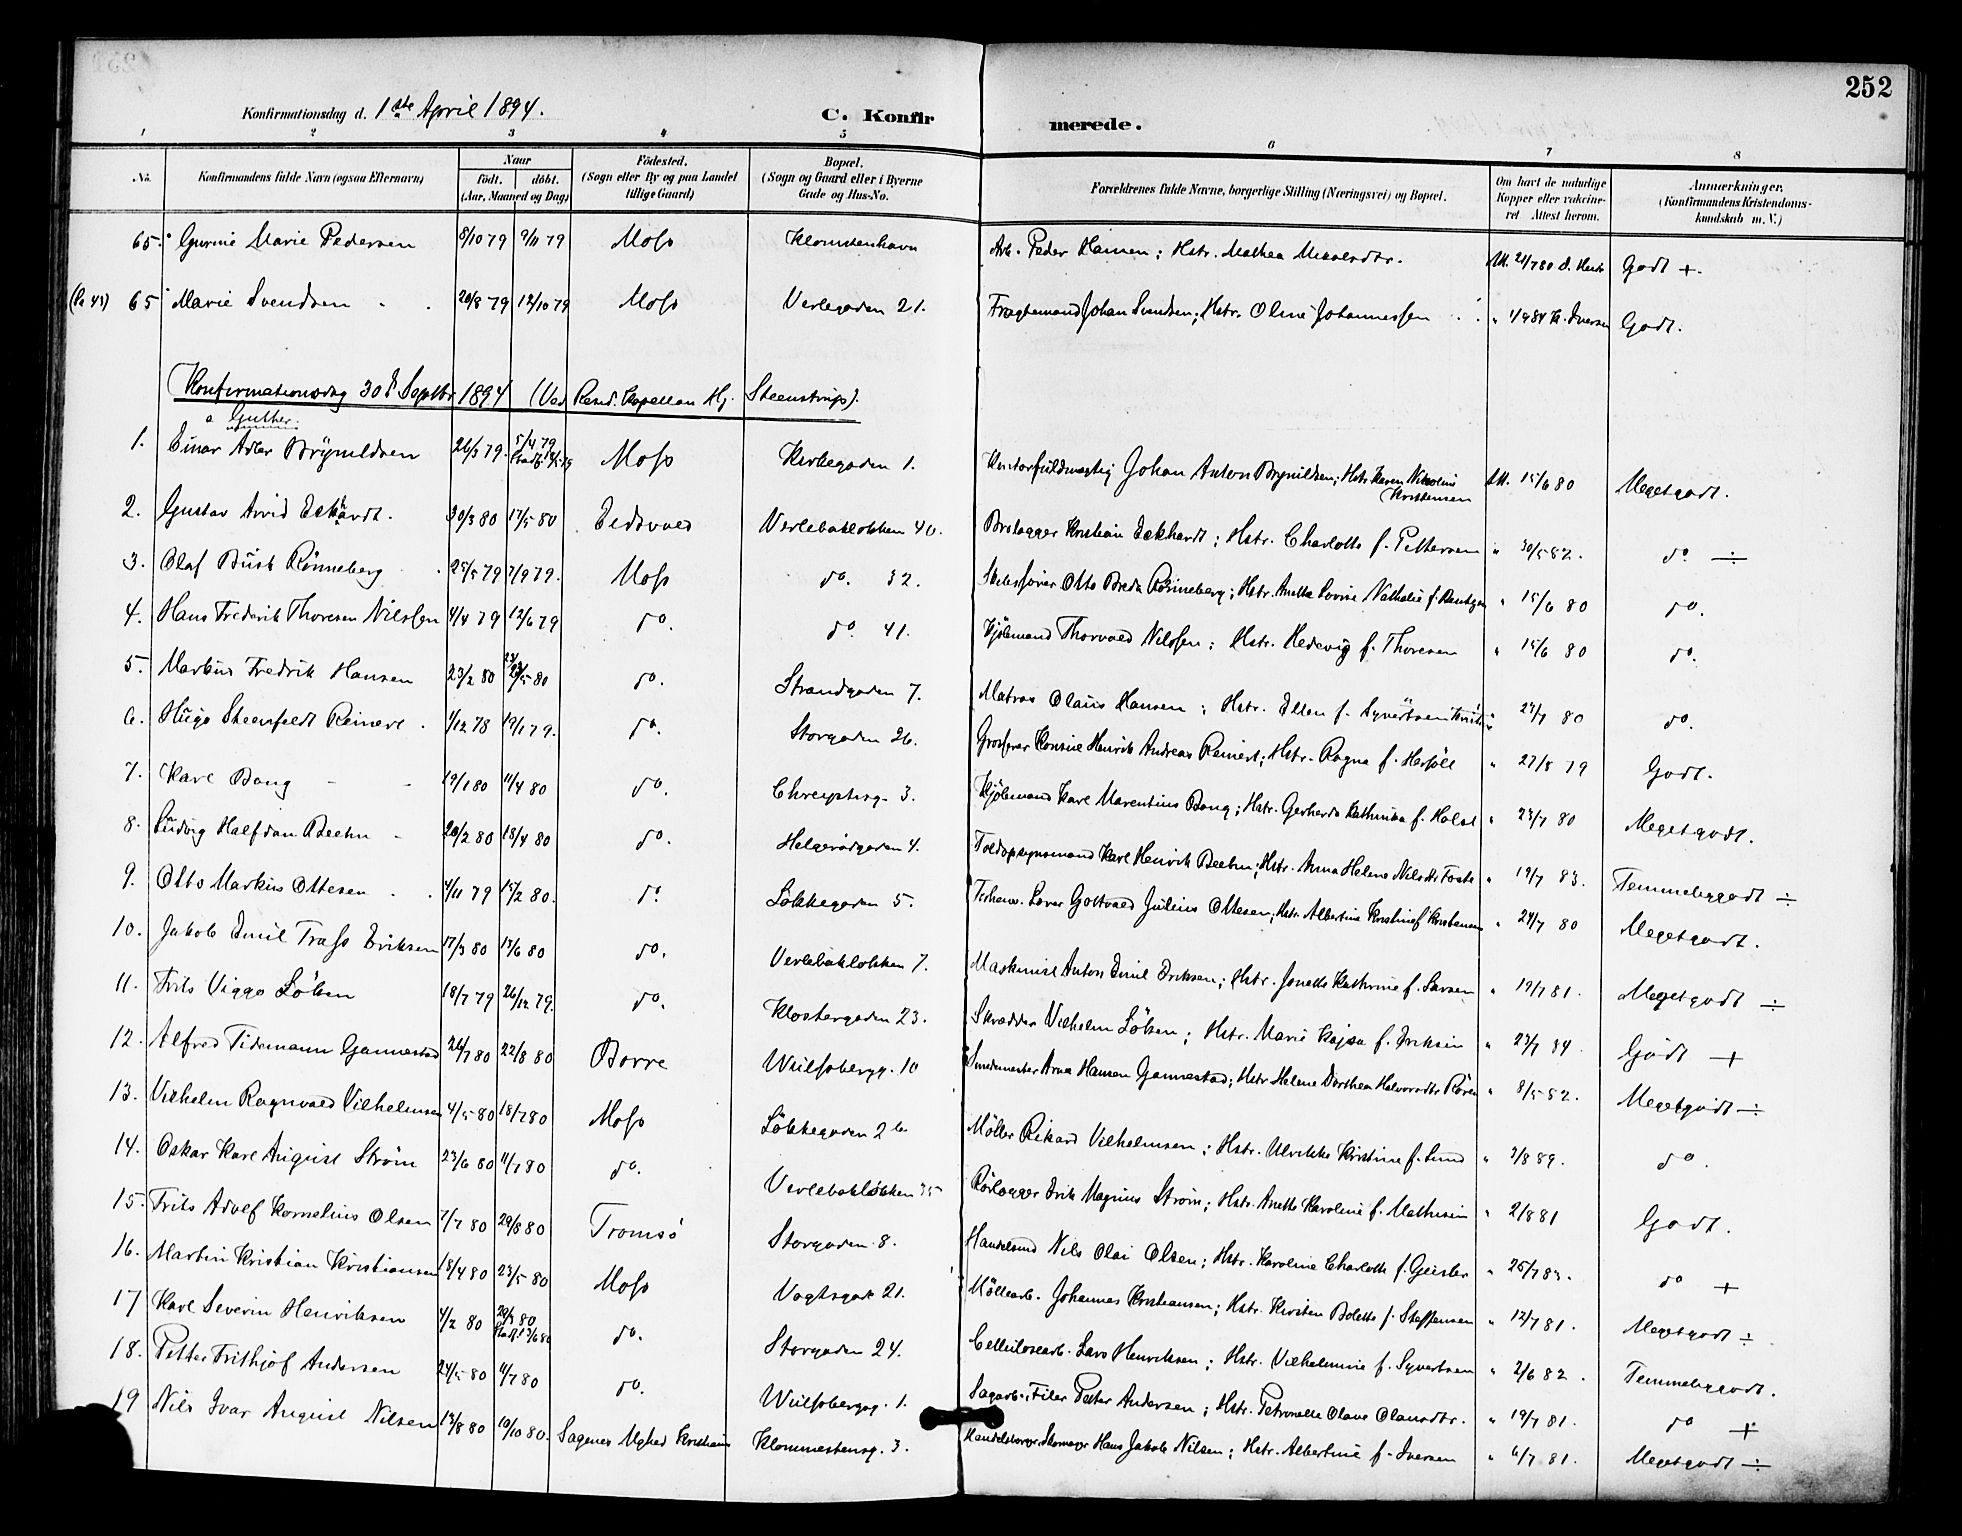 252
Konfirmationsdag d. 1ste April 1894.
C. Konfirmerede.
1 2 3 4 5 6 7 8
No. Konfirmandens fulde Navn (ogsaa Efternavn) Naar født. døbt. (Aar, Maaned og Dag) Fødested. (Sogn eller By og paa Landet tillige Gaard) Bopæl. (Sogn og Gaard eller i Byerne Gade og Hus-No. Forældrenes fulde Navne, borgerlige Stilling (Næringsvei) og Bopæl. Om havt de naturlige Kopper eller vakcineret. Attest herom. Anmærkninger. (Konfirmandens Kristendomskundskab m. V.)
65. Marie Pedersen 8/10 79 9/11 79 Moss Arb. Peder Hansen; Hstr. Mathea 21/7 80 Godt +.
65 Marie Svendsen 20/8 79 12/10 79 Moss Verlegaden 21. Fragtemand Johan Svendsen; Hstr. Oline Johannessen Godt.
Konfirmationsdag 30 Septbr 1894 (Ved Resid. Kapellan Hj. Steenstrup).
a Guther.
1. Einar Adler Brynildsen 26/3 79. 5/4 79 Moss Kirkegaden 1. Kontorfuldmægtig Johan Anton Brynildsen; Hstr. Karen Nikoline Kristensen Att. 15/6 80 Megetgodt.
2. Gustav Arvid Eckhardt. 30/3 80 17/5 80 Eidsvold Verlebakløkken 40. Brolægger Kristian Eckhardt; Hstr. Charlotte f. Pettersen " 30/5 82. do ÷
3. Olaf Rønneberg 25/5 79 7/9 79. Moss do. 32. Skibsfører Otto Rønneberg; Hstr. Anette Lovise Nathalie f. " 15/6 80 do.
4. Hans Frederik Thoresen Nilssen 4/4 79 12/6 79 do. do. 41. Kjøbmand Thorvald Nilssen; Hstr. Hedevig f. Thoresen " 15/6 80 do.
5. Markus Fredrik Hansen 23/2 80 23/5 80 do. Strandgaden 7. Matros Olaus Hansen; Hstr. Ellen f. Syvertsen " 27/7 80 do.
6. Hugo Steenfeldt Reinert. 1/12 78 19/1 79. do. Storgaden 26. Grosserer Konsul Henrik Andreas Reinert; Hstr. Ragna f. " 27/8 79 Godt.
7. Karl Bang 19/1 80 11/4 80 do. Chrystiesg. 3. Kjøbmand Karl Marentius Bang; Hstr. Gerharda Kathinka f. Holst " 27/7 80 Megetgodt.
8. Ludvig Halfdan Beehn 20/2 80 18/4 80 do. Helgerødgaden 4. Toldopsynsmand Karl Henrik Beehn; Hstr. Anna Helene Nilsdtr " 19/7 83. Temmeliggodt ÷
9. Otto Markus Ottesen 4/11 79 15/2 80. do Løkkegaden 5. Gottvald Julius Ottesen; Hstr. Albertine Kristine f. Kristensen " 27/7 80 Megetgodt.
10. Jakob Emil Eriksen 17/3 80 13/6 80 do. Verlebakløkken 7. Maskinist Anton Emil Eriksen; Hstr. Jonette Kathrine f. Larsen " 19/7 81. Megetgodt ÷
11. Frits Viggo Løken 18/7 79 26/12 79. do. Klostergaden 23. Skrædder Vilhelm Løken; Hstr. Marie Kajsa f. Eriksen " 23/7 84. Godt +
12. Alfred Tidemann Gannestad 24/7 80 22/8 80 Borre Wulfsbergg. 10 Smedmester Hansen Gannestad; Hstr. Helene Dorthea Halvorsdtr " 8/5 82. Megetgodt ÷
13. Vilhelm Ragnvald Vilhelmsen 4/5 80 18/7 80 Moss Løkkegaden 2b Møller Rikard Vilhelmsen; Hstr. Ulrikke Kristine f. Lund " 7/8 89. do.
14. Oskar Karl August Strøm 23/6 80 11/7 80 do. Verlebakløkken 35 Rørlægger Erik Magnus Strøm; Hstr. Anette Karoline f. Mathisen " 2/8 81 Godt.
15. Frits Adolf Kornelius Olsen 7/7 80 29/8 80 Tromsø Storgaden 8. Handelsmd Nils Olai Olsen; Hstr. Karoline Charlotte f. Geisler " 25/7 83. do +
16. Martin Kristian Kristiansen 18/4 80 23/5 80 Moss Vogtsgade 21. Møllearb. Johannes Kristiansen; Hstr. Kirsten Bolette f. Steffensen " 12/7 81. Megetgodt ÷
17 Karl Severin Henriksen 4/2 80 29/3 80 do. Storgaden 24. Cellulosearb. Lars Henriksen; Hstr. Vilhelmine f. Syvertsen " 2/6 82. Temmeliggodt.
18. Petter Frithjof Andersen 24/5 80 11/7 80 do. Wulfsbergg. 1. Sagarb. Filer Petter Andersen; Hstr. Petronelle Olava Olausdtr. " 19/7 81. do +
19 Nils Ivar August Nilsen 12/8 80 10/10 80. Sagenes Mghed Kristiania Klommestensg. 3. Hans Jakob Nilsen; Hstr. Albertine f. Iversen " 6/7 81. Megetgodt ÷